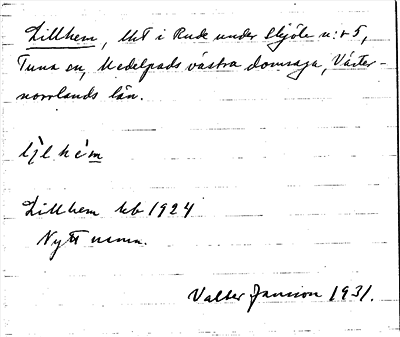 Lillhem, lht i Rude under Skjöle n:r 5,
Tuna sn, Medelpads västra domsaga, Väster-
norrlands län.
Lillhem kb 1924
Nytt namn.
Valter Jansson 1931.